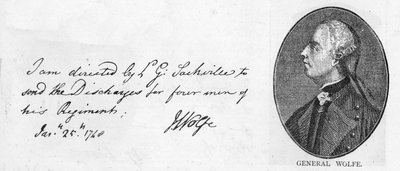 I am directed by Ld G. Sackville to
send the Discharges for four men of
his Regiment.
Jan.ry 25.th
JWolfe
GENERAL WOLFE.